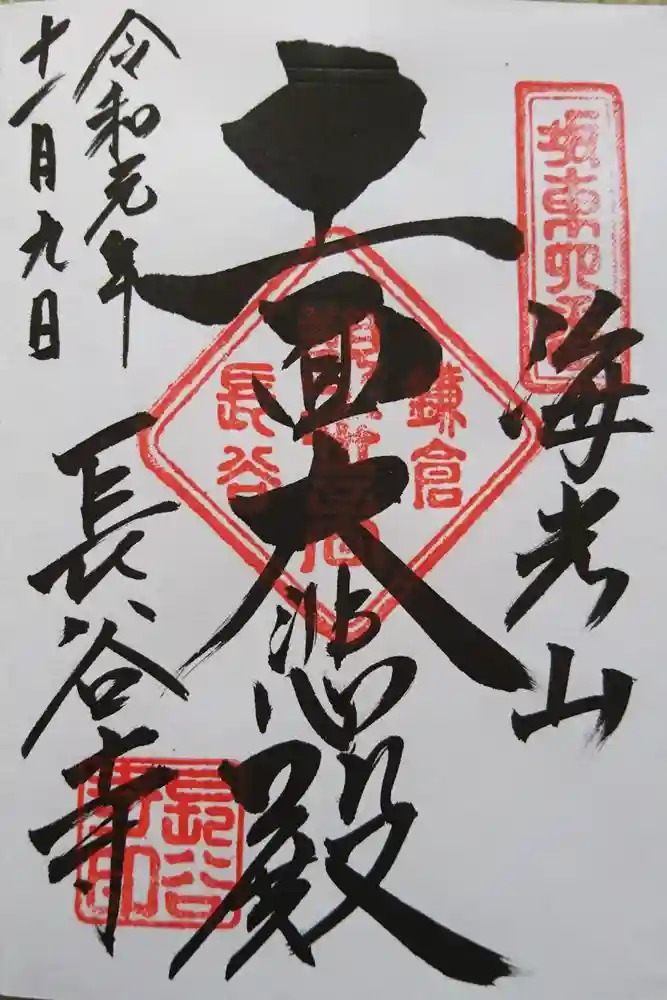 坂東四番
海光山
十一面大悲殿
鎌倉
長谷
令和元年
十一月九日
長谷寺
長谷寺印